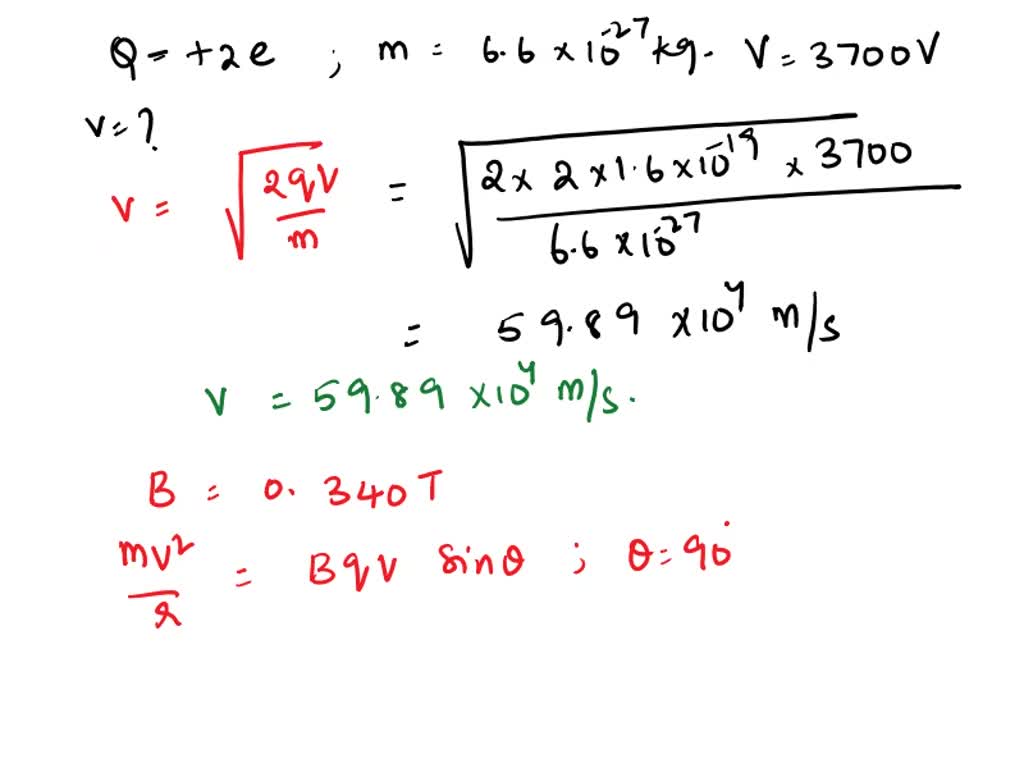 Q = +2e ; m = 6.6 × 10⁻²⁷ kg. V = 3700V
v = ?
v = √(2qV/m) = √(2 × 2 × 1.6 × 10⁻¹⁹ × 3700 / 6.6 × 10⁻²⁷)
= 59.89 × 10⁴ m/s
v = 59.89 × 10⁴ m/s.
B = 0.340T
mv²/r = Bqv sinθ ; θ = 90°